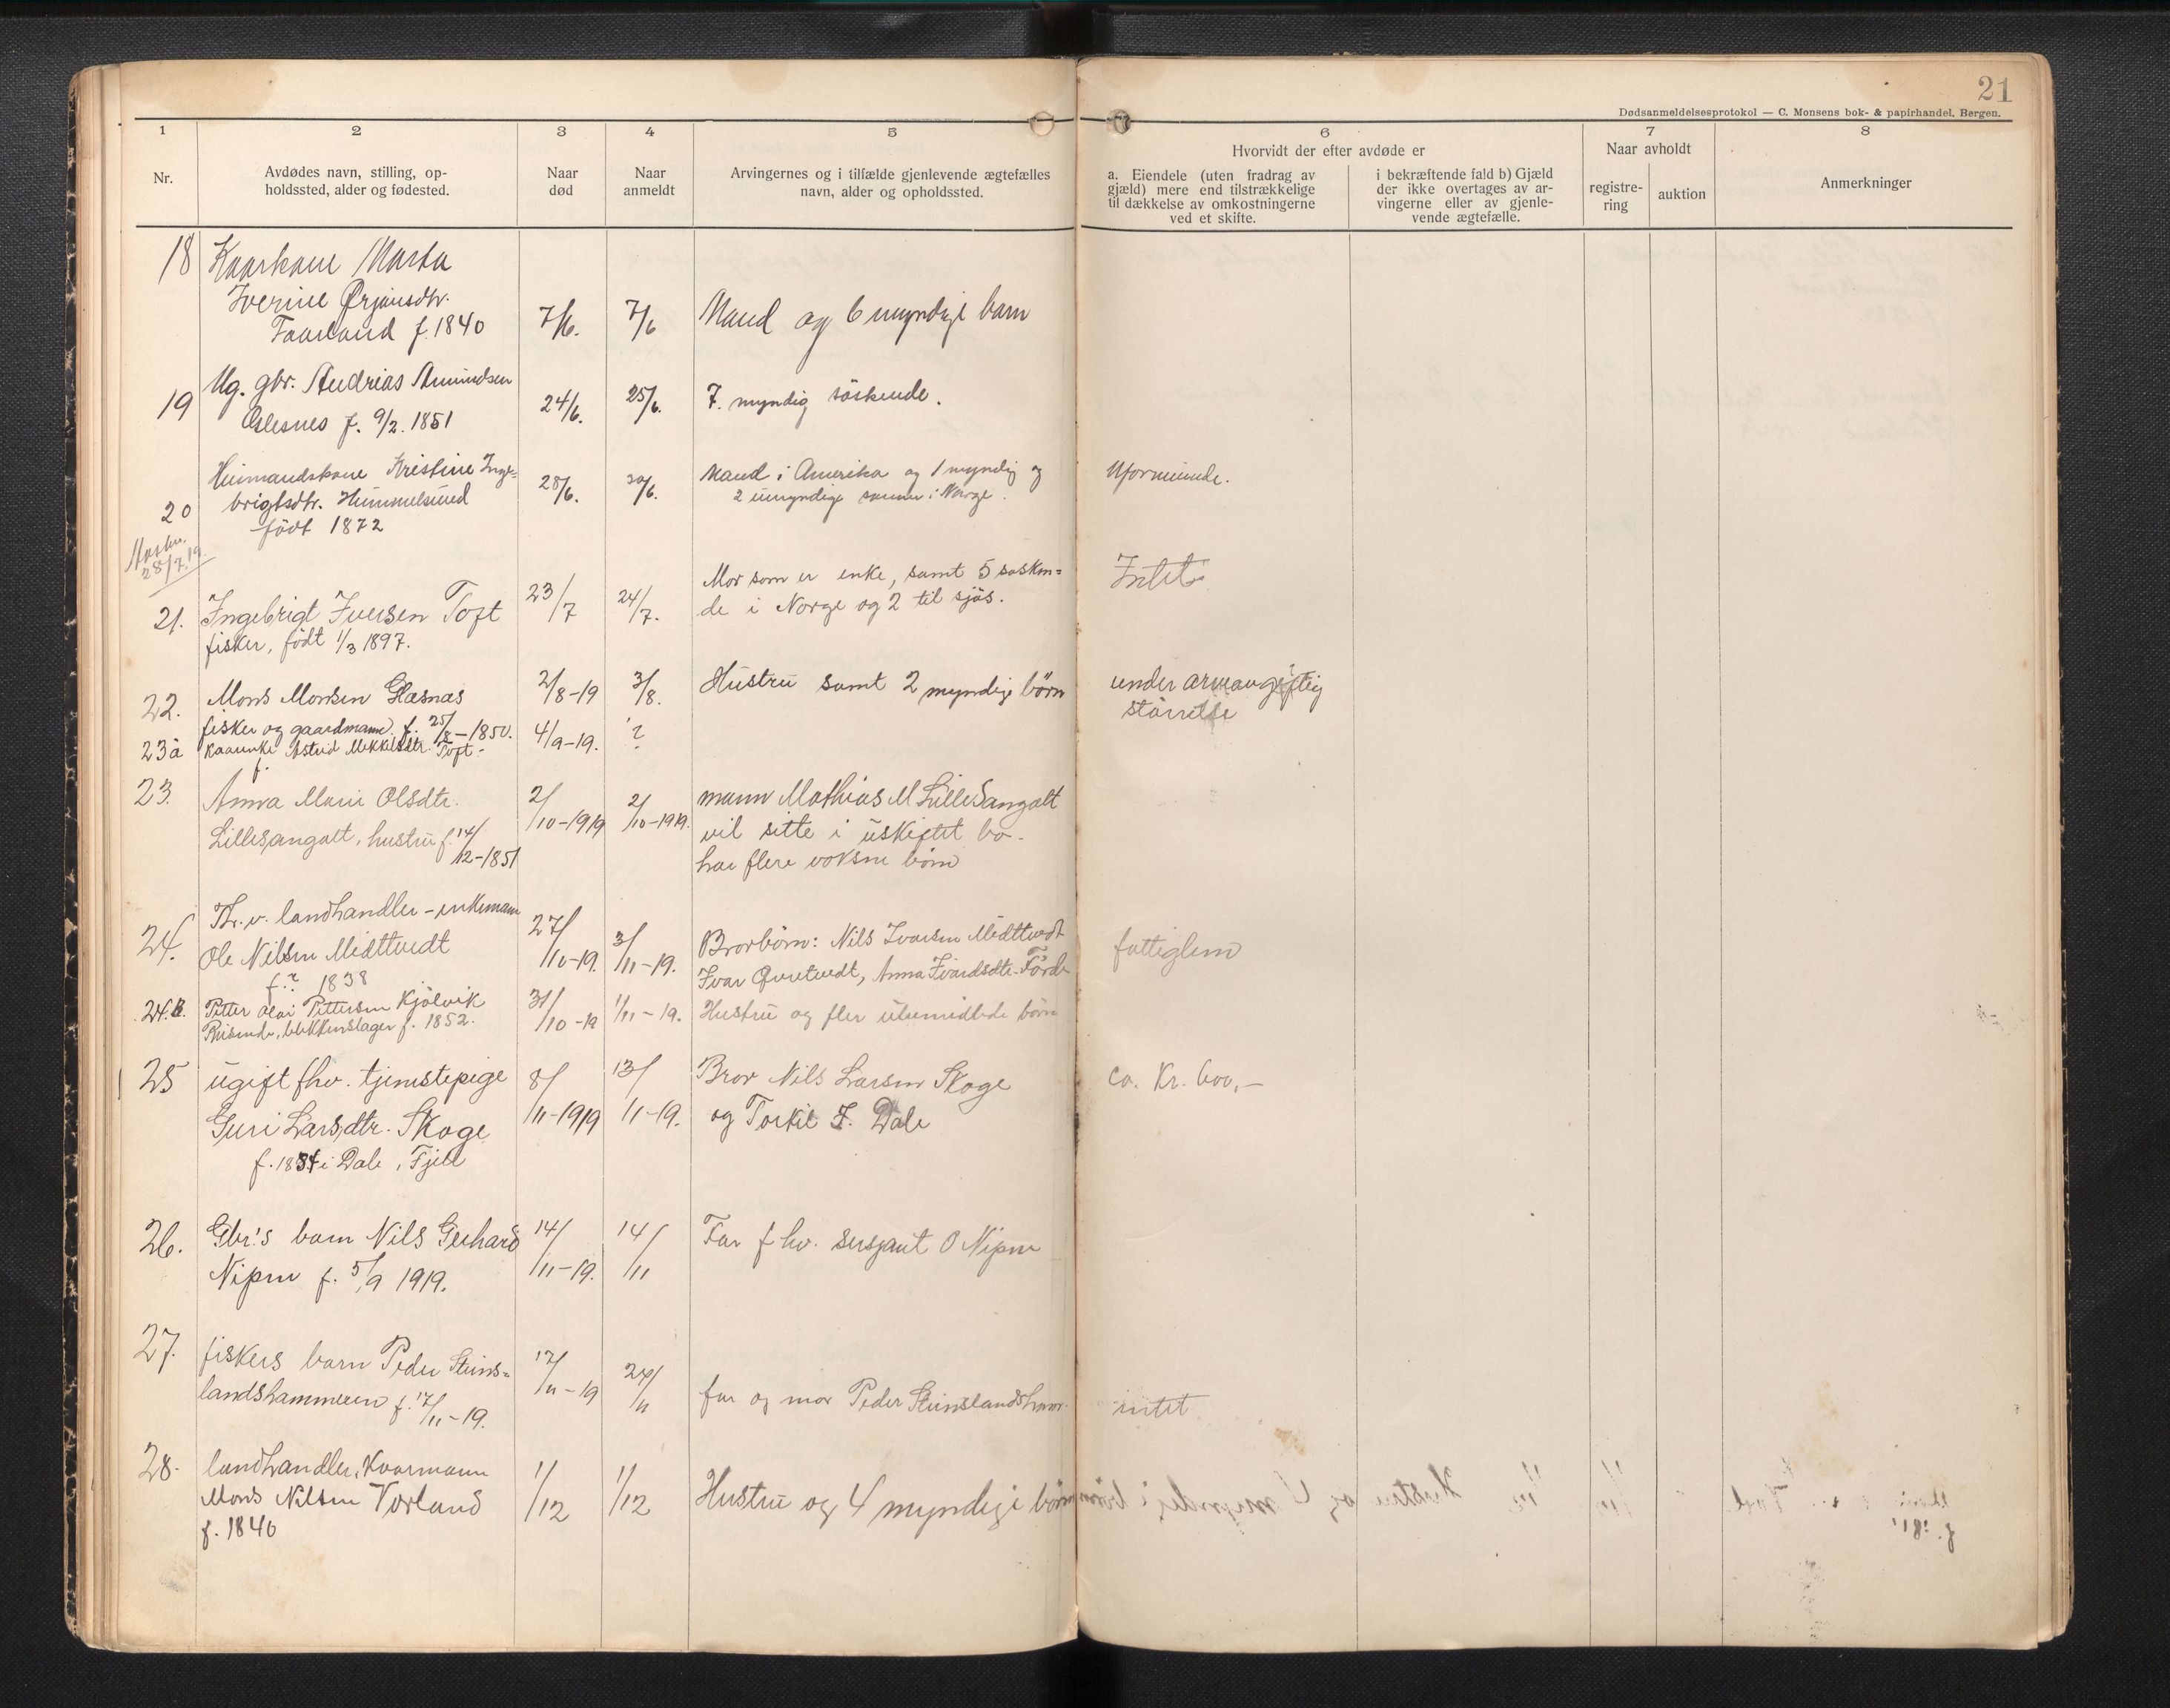 21
Dødsanmeldelsesprotokol — C. Monsens bok- & papirhandel, Bergen.
1 2 3 4 5 6 7 8
Nr.
Avdødes navn, stilling, op-
holdssted, alder og fødested.
Naar
død
Naar
anmeldt
Arvingernes og i tilfælde gjenlevende ægtefælles
navn, alder og opholdssted.
Hvorvidt der efter avdøde er
a. Eiendele (uten fradrag av
gjæld) mere end tilstrækkelige
til dækkelse av omkostningerne
ved et skifte.
i bekræftende fald b) Gjæld
der ikke overtages av ar-
vingerne eller av gjenle-
vende ægtefælle.
Naar avholdt
registre-
ring
auktion
Anmerkninger
18 Kaarkone Marta
Iverine Ørjansdtr.
f. 1840 7/6. 7/6 Mand og 6 myndige barn
19 Ug. gbr. Andrias Amundsen
f. 9/2. 1851 24/6. 25/6. 7. myndig söskende.
20 Husmandskone Kristine Inge-
brigtsdtr. Hummelsund
född 1872
28/6. 30/6. Mand i Amerika og 1 myndig og
2 umyndige sønner i Norge.
Uformuende.
28/7.19.
21. Ingebrigt Iversen Toft
fisker, födt 1/3 1897.
23/7 24/7. Mor som er enke, samt 5 søsken=
de i Norge og 2 til sjøs.
Intet
22. Mons Monsen Glæsnas
fisker og gaardmann f. 25/8-1850.
2/8-19 3/8. Hustru samt 2 myndige børn
under arveavgiftig
størrelse
23a Kaarenke Astrid Mikkelsdtr. Toft- 4/9-19. ?
f.
23. Anna Marie Olsdtr.
Lillesangolt, hustru f. 14/12-1851
2/10-1919 2/10-1919. mann Mathias M LilleSangolt
vil sitte i uskiftet bo-
har flere voksne børn
24. Fh.v. landhandler-enkemann
Ole Nilsen Midttvedt
f. ? 1838
27/10-19. 3/11-19. Brorbørn: Nils Ivarsen Midttvedt
Ivar Qvrtvedt, Anna Ivarsdtr. Förde
fattiglem
24.B. Petter Olai Pettersen Kjølvik
Reisende, blikkenslager f. 1852.
31/10-19 1/11-19. Hustru og fler ubemidlede børn
25 ugift fhv. tjenstepige
Guri Larsdtr. Skoge
f. 1834 i Dale, Fjell
8/11-1919 13/11-19. Bror Nils Larsen Skoge
og Torkil I. Dale
ca. Kr. 600,-
26. Gbr.'s barn Nils Gerhard
Nipen f. 5/9 1919.
14/11-19. 14/11 Far fhv. sersjant O Nipen
27. fiskers barn Peder Steins=
landshammeren f. 17/11-19.
17/11-19 24/11 far og mor Peder Steinslandshmr.
intet
28. landhandler, Kaarmann
Mons Nilsen Vorland
f. 1840
1/12 1/12 Hustru og 4 myndige børn